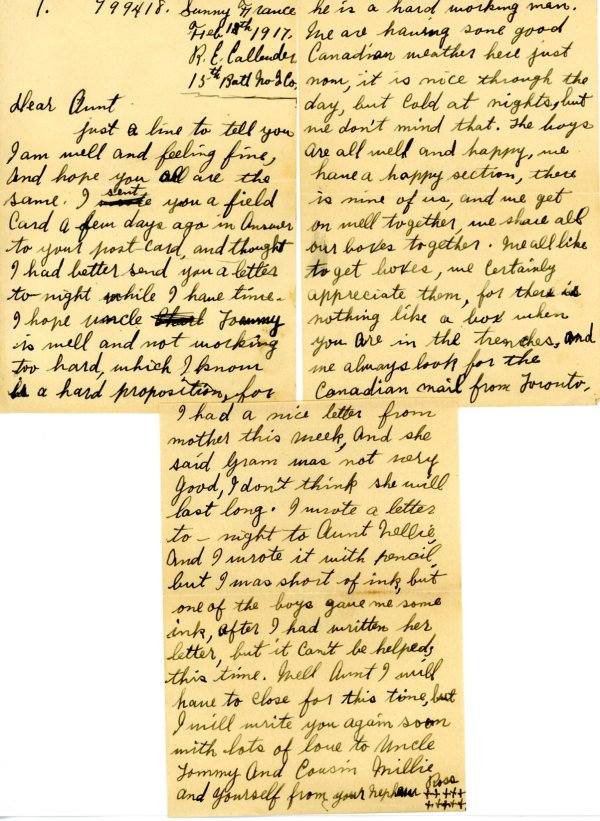 1. 799418. Sunny France
Feb. 18th 1917.
R. E. Callender
15th Batt No 2 Co,
Dear Aunt
Just a line to tell you
I am well and feeling fine,
And hope you all are the
same. I sent you a field
Card a few days ago in Answer
to your post card, and thought
I had better send you a letter
to night while I have time-
I hope uncle Tommy
is well and not working
too hard, which I know
is a hard proposition, for
he is a hard working man.
We are having some good
Canadian weather here just
now, it is nice through the
day, but Cold at nights, but
we don't mind that. The boys
are all well and happy, we
have a happy section, there
is nine of us, and we get
on well together, we share all
our boxes together. We all like
to get boxes, we Certainly
appreciate them, for there is
nothing like a box when
you are in the trenches, and
we always look for the
Canadian mail from Toronto.
I had a nice letter from
mother this week, And she
said Gram was not very
Good, I don't think she will
last long. I wrote a letter
to-night to Aunt Nellie,
And I wrote it with pencil,
but I was short of ink, but
one of the boys gave me some
ink, after I had written her
letter, but it can't be helped,
this time. Well Aunt I will
have to close for this time, but
I will write you again soon
with lots of love to Uncle
Tommy And Cousin Millie
and yourself from your nephew Ross
+++++
+++++